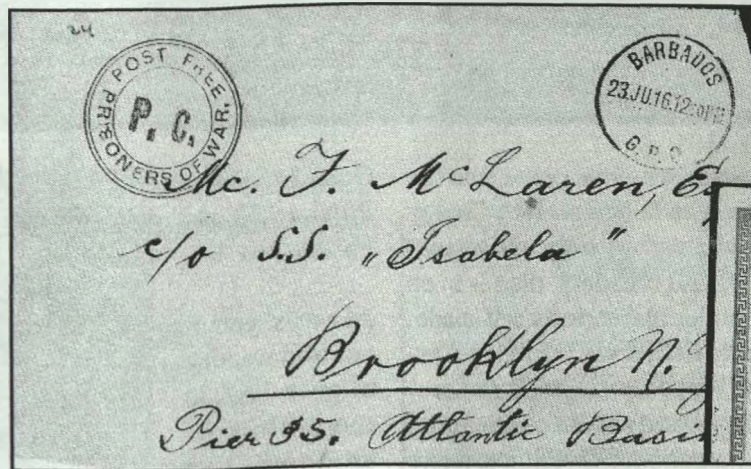 24
POST FREE
PRISONERS OF WAR.
P. C.
BARBADOS
23.JU.16.12
G.P.O
Mc. F. McLaren,
c/o S.S. "Isabela"
Brooklyn N.
Pier 35. Atlantic Basin